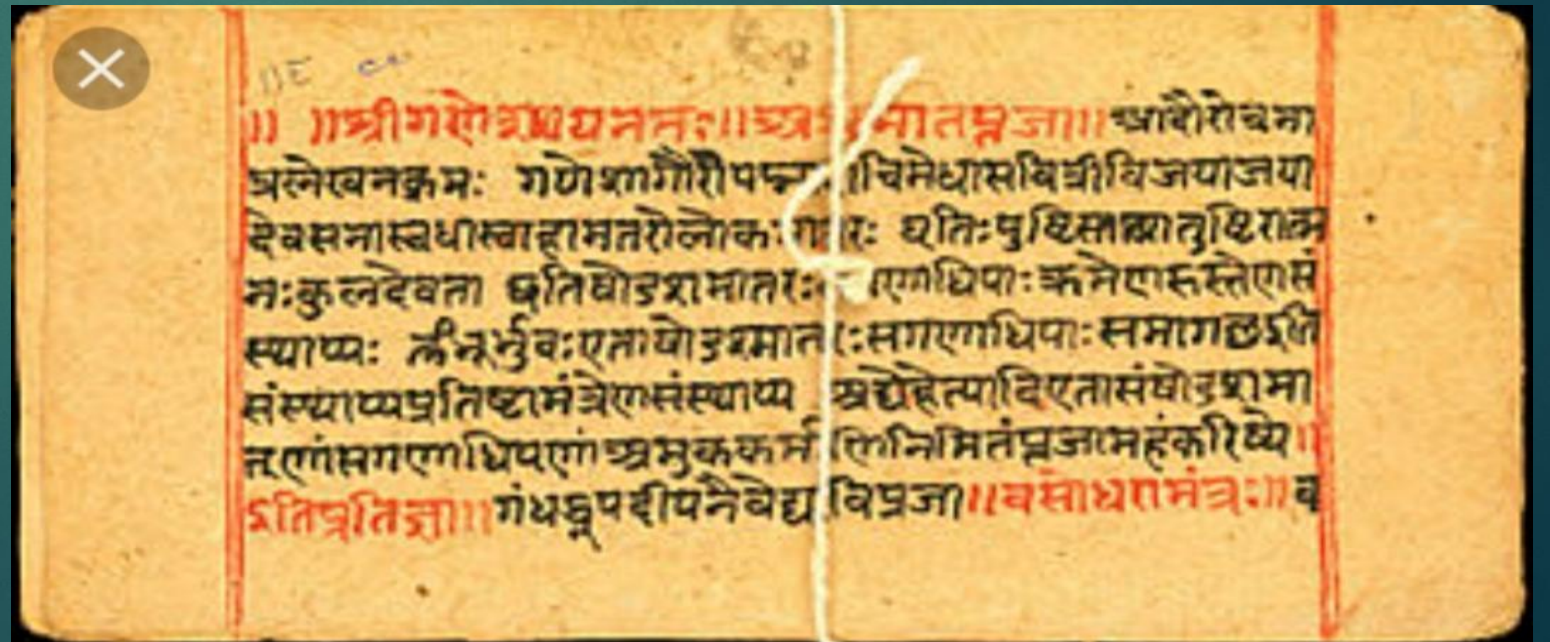 ॥ ॥श्रीगणेशायनमः॥ मातपूजा॥॥ आदौरोचना
प्रलेखनक्रमः गणेशागौरीपद्मा चिमेधासवित्रीविजयाजया
देवसनास्वधास्वाहामतरोलोकः धृतिःपुष्टिस्तथातुष्टिरात्म
नःकुलदेवता धृतिषोडशमातरः णाधिपाःक्रमेण सं
स्थाप्यः र्भुवःएताषोडशमातरःसगणाधिपाः
संस्थाप्यप्रतिष्टामंत्रेणसंस्थाप्य अद्येहेत्यादिएतासंषोडशमा
तृणांसगणाधिपणंअमुककर्म णिनिमितंपूजामहंकरिष्ये॥
इतिप्रतिज्ञा॥॥गंधधूपदीपनैवेद्य विपूजा॥ मंत्रः॥व